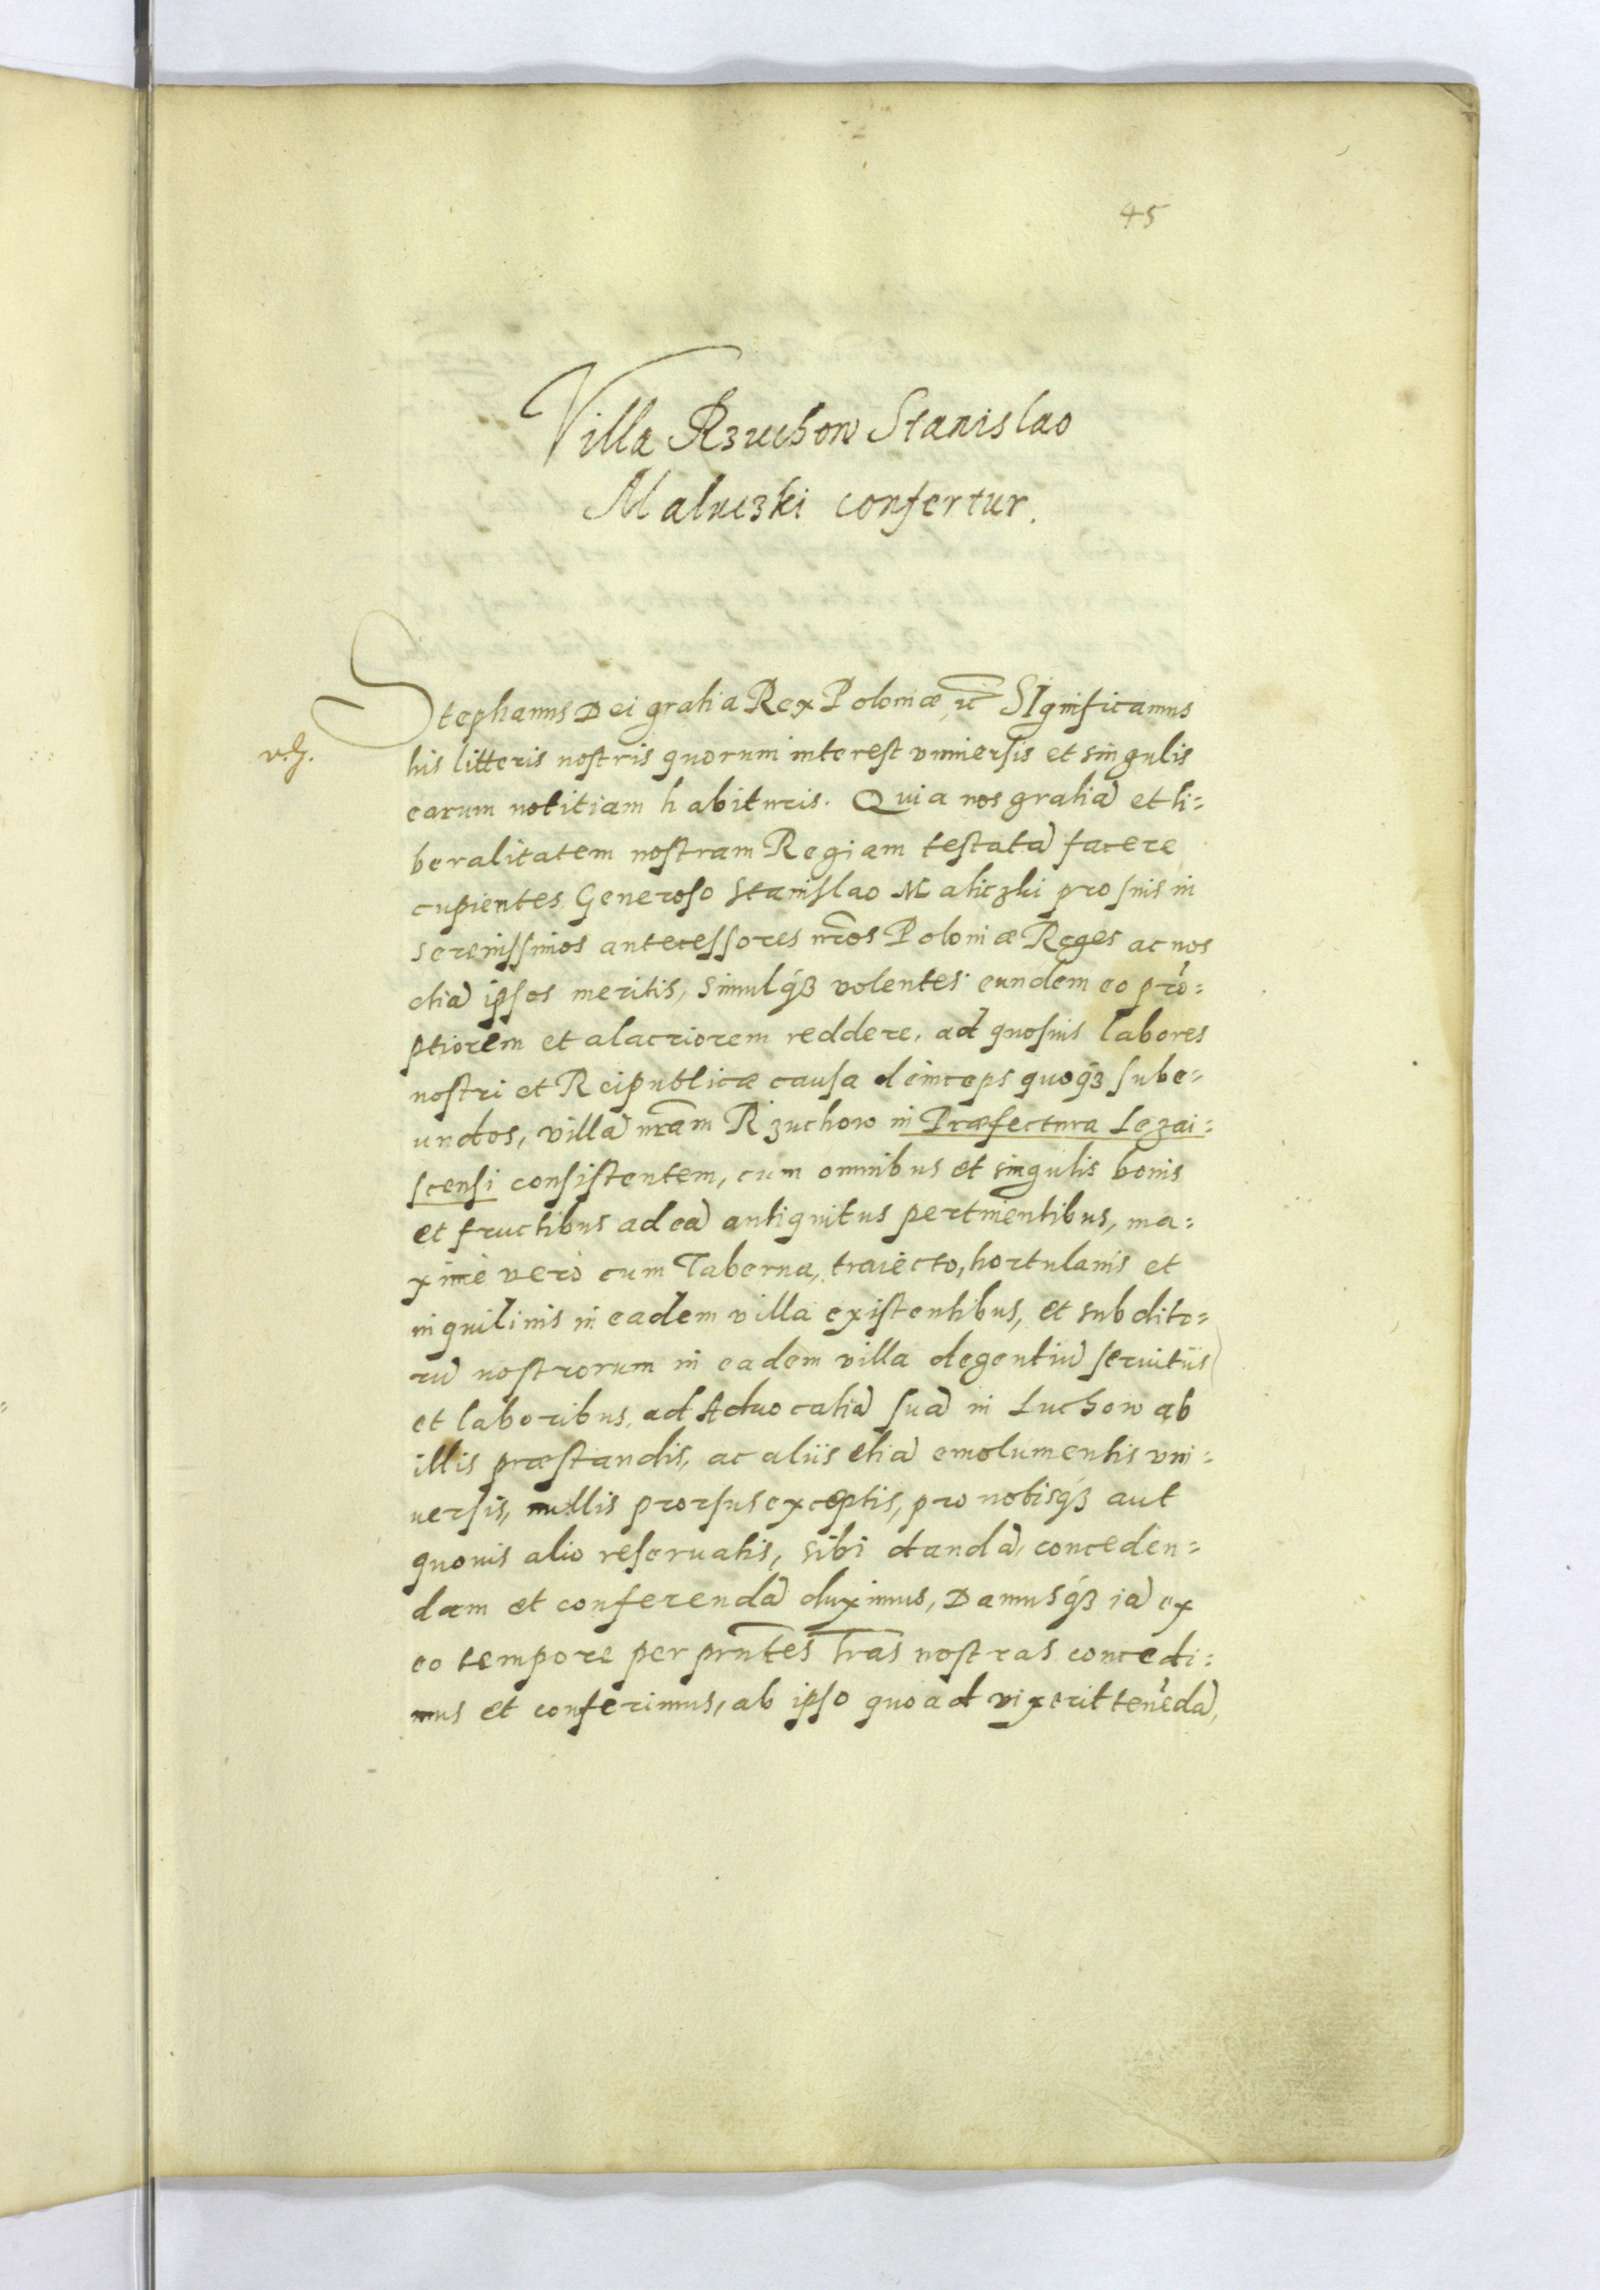 45
Villa Rzuchow Stanislao
Maluczki confertur.
Stephanus Dei gratia Rex Poloniæ, etc̃ SIgnificamus
his litteris nostris quorum interest vniuersis et singulis
earum notitiam habituris. Quia nos gratiã et li=
beralitatem nostram Regiam testatã facere
cupientes Generoso Stanislao Maliczki pro suis in
serenissimos antecessores nr̃os Poloniæ Reges ac nos
etiã ipsos meritis, simulq́ꝫ volentes eundem eo prõ=
ptiorem et alacriorem reddere, ad quosuis labores
nostri et Reipublicæ causa deinceps quoq́ꝫ sube=
undos, villã nr̃am Rzuchow in Præfectura Lezai=
scensi consistentem, cum omnibus et singulis bonis
et fructibus ad eã antiquitus pertinentibus, ma=
ximè verò cum Taberna, traiecto, hortulanis et
inquilinis in eadem villa existentibus, et subdito=
rũ nostrorum in eadem villa degentiũ seruitiis
et laboribus, ad Aduocatiã suã in Luchow ab
illis præstandis, ac aliis etiã emolumentis vni=
uersis, nullis prorsus exceptis, pro nobisq́ꝫ aut
quouis alio reseruatis, sibi dandã, conceden=
dam et conferendã duximus, Damusq́ꝫ iã ex
eo tempore per prn̄tes lr̃as nostras concedi=
mus et conferimus, ab ipso quoad vixerit tenẽdã,